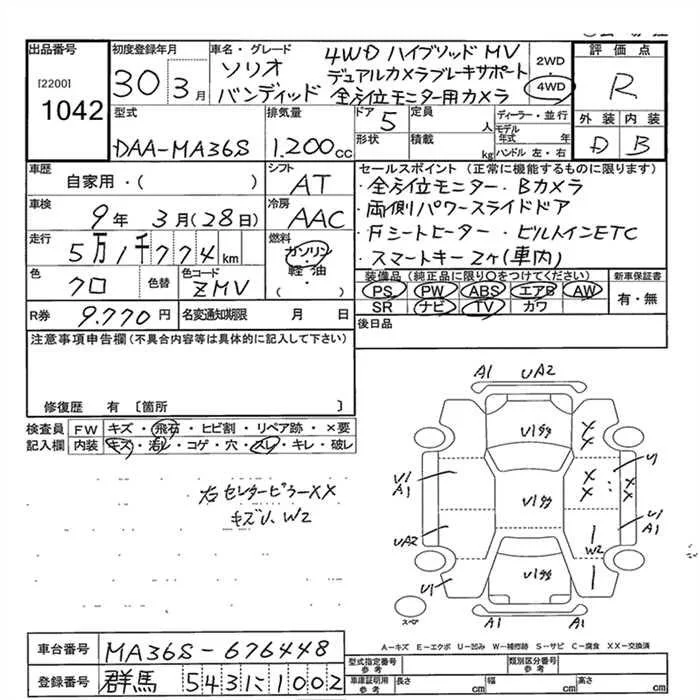 出品番号
[2200]
1042
初度登録年月
30 3月
車名・グレード
ソリオ
バンディット
4WD ハイブリッド MV
デュアルカメラブレーキサポート
全方位モニター用カメラ
2WD
・
4WD
評価点
R
外装 内装
D B
型式
DAA-MA36S
排気量
1.200cc
ドア
5
形状
定員
人
積載
kg
ディーラー・並行
モデル
年式 年
ハンドル 左・右
車歴
自家用・( )
シフト
AT
車検
9年 3月(28日)
冷房
AAC
走行
5万1千774km
燃料
ガソリン
軽油
( ・ )
色
クロ
色替
色コード
ZMV
R券 9.770円
名変通知期限 月 日
セールスポイント (正常に機能するものに限ります)
・全方位モニター・Bカメラ
・両側パワースライドドア
・Fシートヒーター・ビルトインETC
・スマートキー2ヶ(車内)
装備品(純正品に限り○をつけてください)
PS PW ABS エアB AW
SR ナビ TV カワ
新車保証書
有・無
後日品
注意事項申告欄(不具合内容等は具体的に記入して下さい)
修復歴 有〔箇所 〕
検査員
記入欄
FW キズ・飛石・ヒビ割・リペア跡・×要
内装 キズ・汚レ・コゲ・穴・スレ・キレ・破レ
右センターピラーXX
キズU、W2
A1 UA2
U1
U1
A1
UA2
U1
XX
XX
U1
U1
A1
W2
A1 A1
スペア
A-キズ E-エクボ U-凹み W-補修跡 S-サビ C-腐食 XX-交換済
車台番号 MA36S-676448
登録番号 群馬 543 に 1002
型式指定番号
参考
類別区分番号
参考
車庫証明用
参考
長さ cm
幅 cm
高さ cm